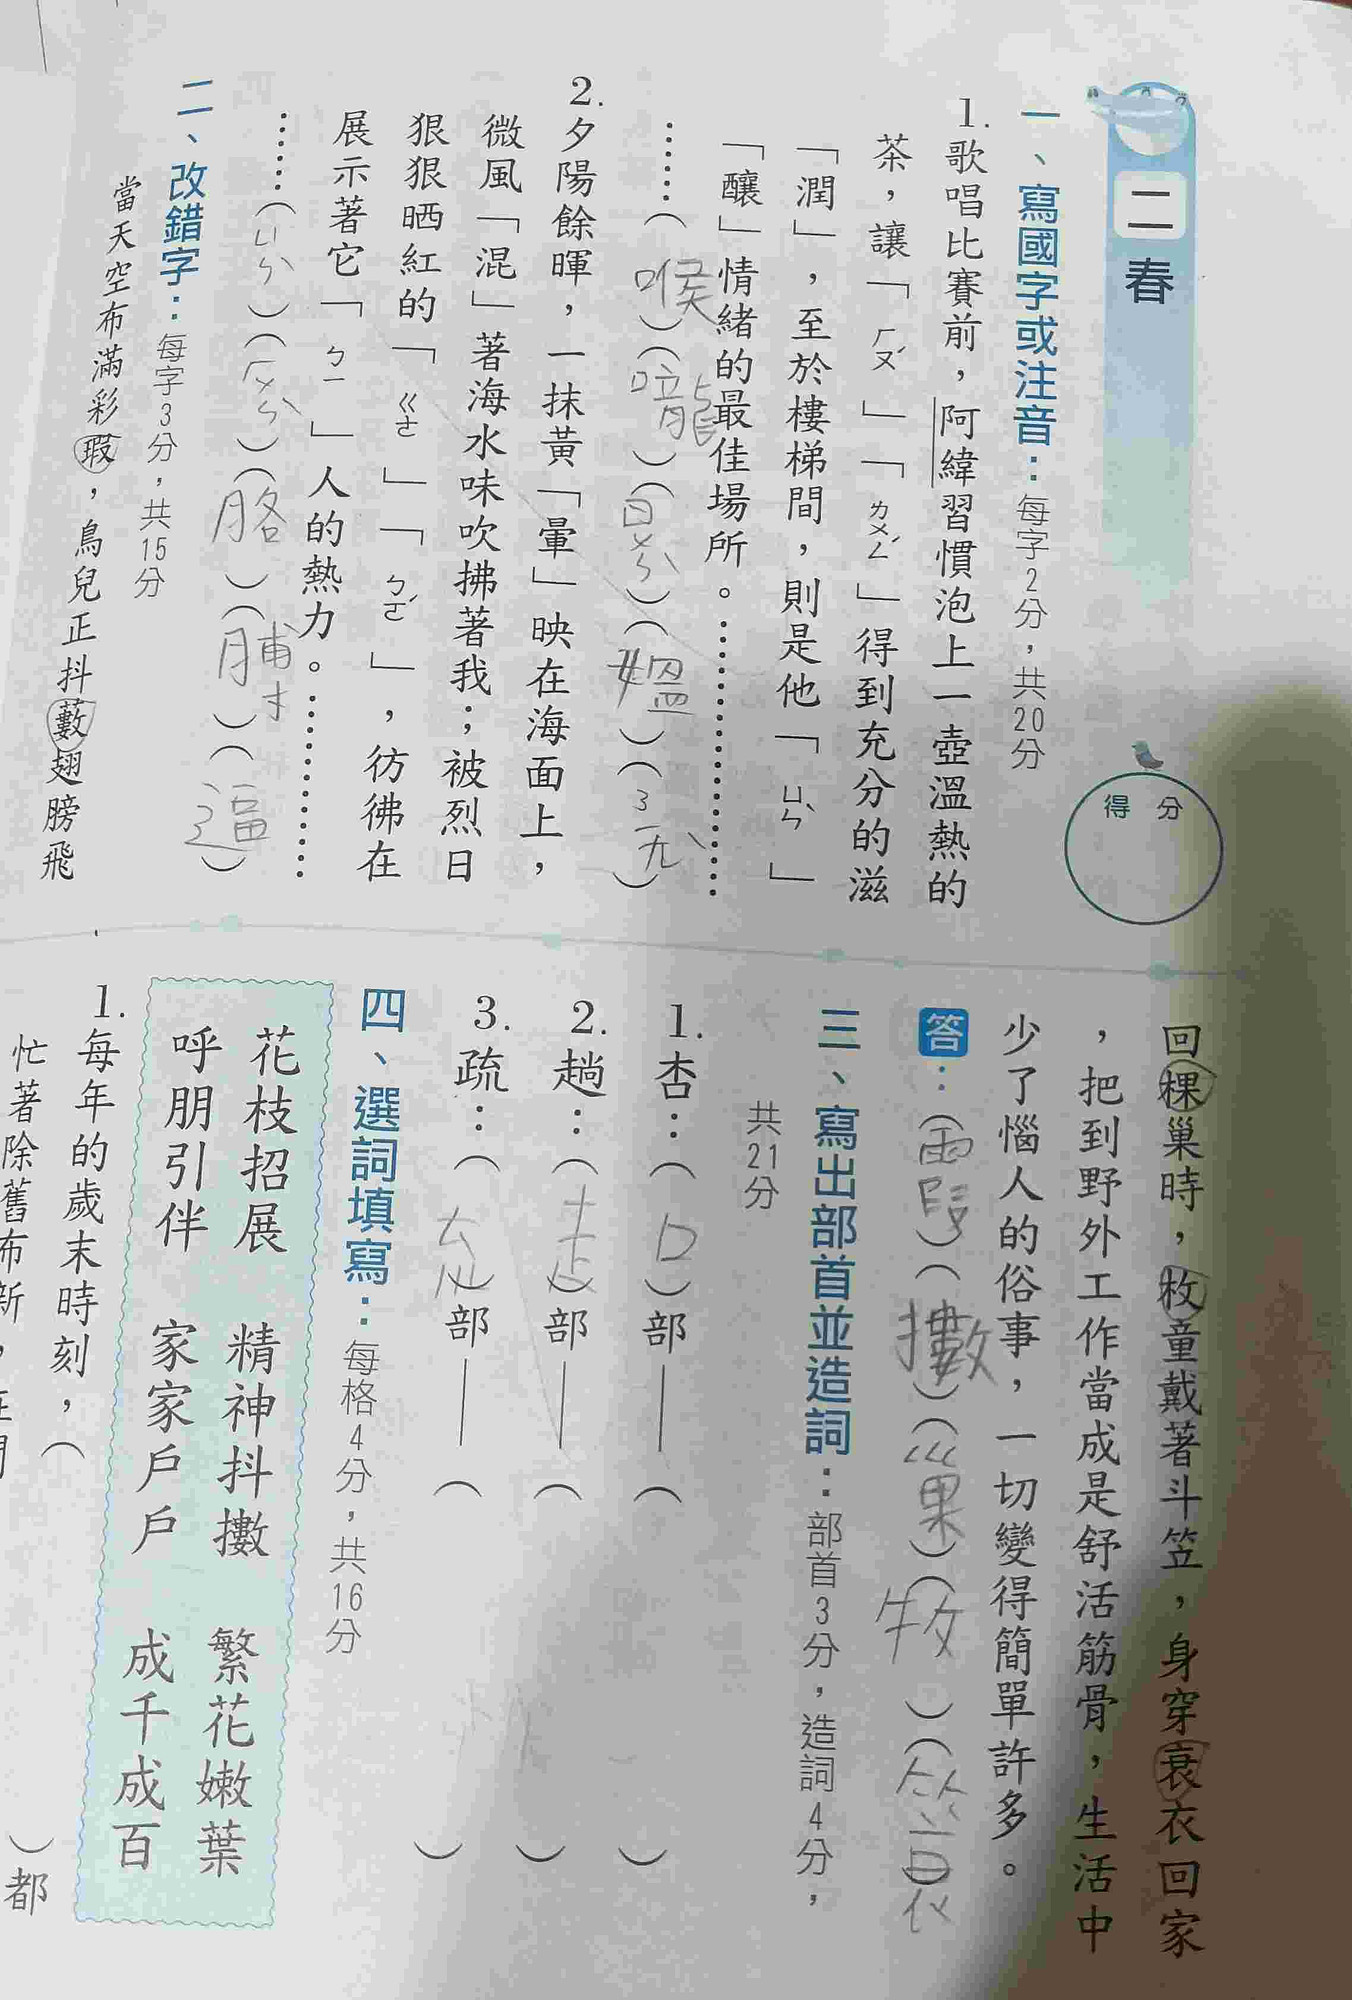 二 春
得分
一、寫國字或注音：每字2分，共20分
1.歌唱比賽前，阿緯習慣泡上一壺溫熱的
茶，讓「ㄏㄡˊ」「ㄌㄨㄥˊ」得到充分的滋
「潤」，至於樓梯間，則是他「ㄩㄣˋ」
「釀」情緒的最佳場所。…………
……（喉）（嚨）（ㄖㄨㄣˋ）（媼）（ㄋㄧㄤˋ）
2.夕陽餘暉，一抹黃「暈」映在海面上，
微風「混」著海水味吹拂著我；被烈日
狠狠晒紅的「ㄍㄜ」「ㄅㄛˊ」，彷彿在
展示著它「ㄅㄧ」人的熱力。…………
……（ㄩㄣˋ）（ㄏㄨㄣˋ）（胳）（膊）（逼）
二、改錯字：每字3分，共15分
當天空布滿彩瑕，鳥兒正抖藪翅膀飛
回棵巢時，枚童戴著斗笠，身穿衰衣回家
，把到野外工作當成是舒活筋骨，生活中
少了惱人的俗事，一切變得簡單許多。
答：（霞）（擻）（巢）（牧）（簑）
三、寫出部首並造詞：部首3分，造詞4分，
共21分
1.杏：（口）部——（ ）
2.趟：（走）部——（ ）
3.疏：（ ）部——（ ）
四、選詞填寫：每格4分，共16分
花枝招展 精神抖擻 繁花嫩葉
呼朋引伴 家家戶戶 成千成百
1.每年的歲末時刻，（ ）都
忙著除舊布新，